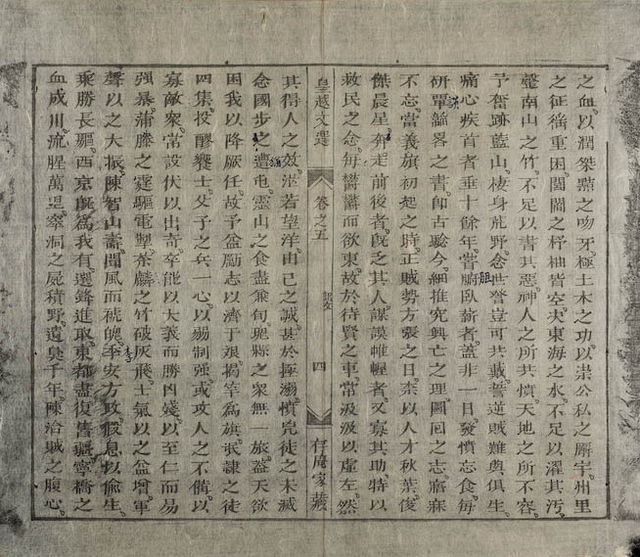 之血以潤桀黠之吻牙極土木之功以崇公私之廨宇州里
之征徭重困閭閻之杼柚皆空决東海之水不足以濯其汚
罄南山之竹不足以書其惡神人之所共憤天地之所不容
予奮跡藍山棲身荒野念世讐豈可共戴誓逆賊難與俱生
痛心疾首者垂十餘年嘗膽臥薪者葢非一日發憤忘食每
研畧之書卽古驗今細推究興亡之理圖回之志寤寐
不忘當義旗初起之時正賊勢方張之日柰以人才秋葉俊
傑晨星奔走前後者旣乏其人謀謨帷幄者又寡其助特以
救民之念每欝欝而欲東故於待賢之車常汲汲以虛左然
皇越文選 卷之五 四 存庵家藏
其得人之效茫若望洋由己之誠甚於拯溺憤兇徒之未滅
念國步之遭屯靈山之食盡兼旬縣之衆無一旅葢天欲
困我以降厥任故予益勵志以濟于艱揭竿為旗氓隸之徒
四集投醪饗士父子之兵一心以弱制强或攻人之不備以
寡敵衆常設伏以出奇卒能以大義而勝凶殘以至仁而易
强暴蒲藤之霆驅電掣茶麟之竹破灰飛士氣以之益增軍
聲以之大振陳智山壽聞風而褫魄李安方政假息以偷生
乘勝長驅西京旣為我有選鋒進取東都盡復舊疆寧橋之
血成川流腥萬里窣洞之屍積野遺臭千年陳洽賊之腹心